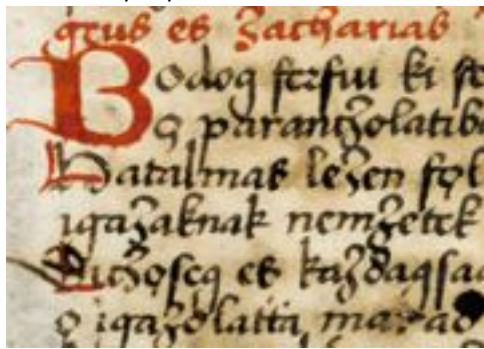 gęus es Zacharias
Bodog ferfiu ki fę
ọ̈ parančolatiba
Hatalmas lezen fọl
igazaknak nemzetek
Dičọseg es kazdagsag
ọ igazolatta marad